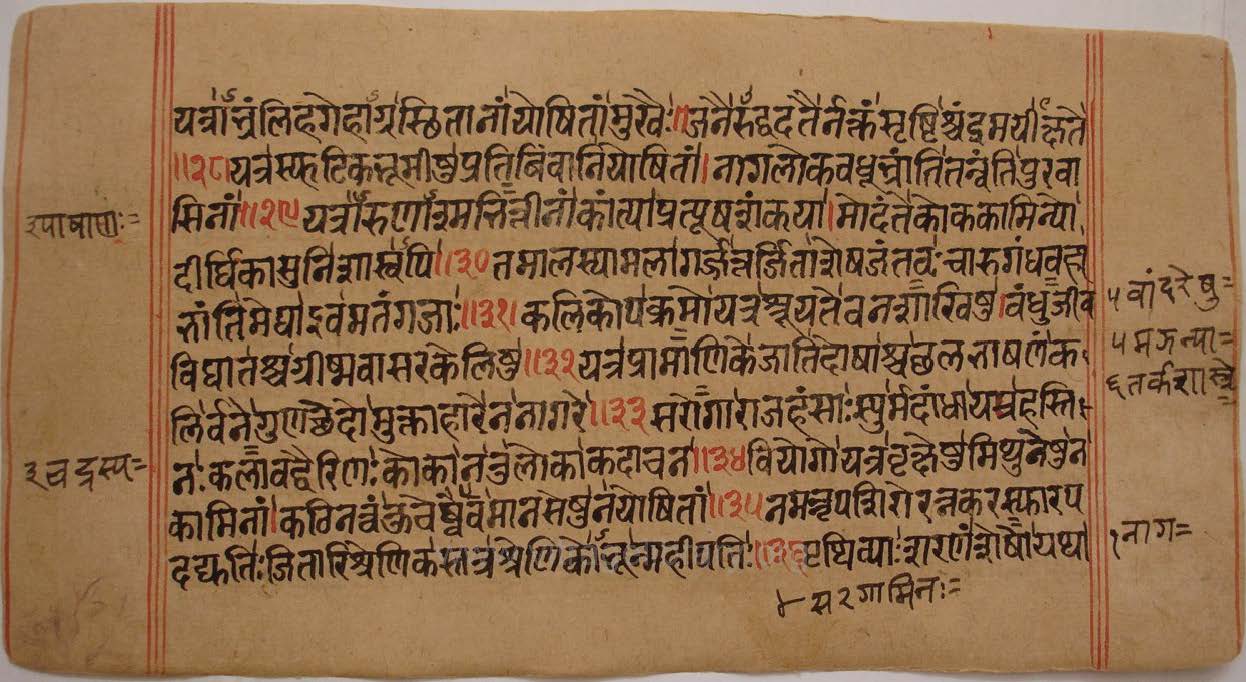 यत्राभ्रंलिहगेहाग्रस्थितानां योषितां मुखैः॥ जनैरुद्वदतैर्नक्तं सृष्टिश्चंद्रमयीक्ष्यते
॥२८ यत्र स्फटिकभूमीषु प्रतिबिंबानि योषितां। नागलोकवधूभ्रांतिं तन्वंति पुरवा
सिनां॥२९ यत्रारुणाश्मभित्तीनां कांत्या प्रत्यूषशंकया। मोदंते कोककामिन्यो
दीर्घिकासु निशास्वपि॥३० तमालस्यामला गर्जन्नर्जिता चारुगंधवह
भ्रांतिमेघा इव मतंगजाः॥३१। कलिकोपक्रमो यत्र श्रूयते वनशाखिषु। बंधुजीव
विघातश्च ग्रीष्मवासरकेलिषु॥३२ यत्र प्रामाणिके जातिदोषाश्च छलभाषणं क
लिर्वने गुणछेदो मुक्ताहारे न नागरे॥३३ सरोगा राजहंसाः स्पुर्मदांधा यत्र हस्ति
नः कलावद्वैरिणः कोका न तु लोका कदाचन॥३४ वियोगो यत्र वृक्षेषु मिथुनेषु न
कामिनां। कठिनत्वं कुचेष्वेव मानसेषु न योषितां॥३५ नमन्नृपशिरोरत्नकरस्फारप
दद्युतिः जितारिश्रेणिकस्तत्र श्रेणिकोभून्महीपतिः॥३६ पृथिव्याः शरणं शेषो यथा
३पाषाणः=
३चंद्रस्य=
५वांदरेषु=
५मजन्या=
६तर्कशास्त्रे=
१नाग=
४ सरगामिनः=